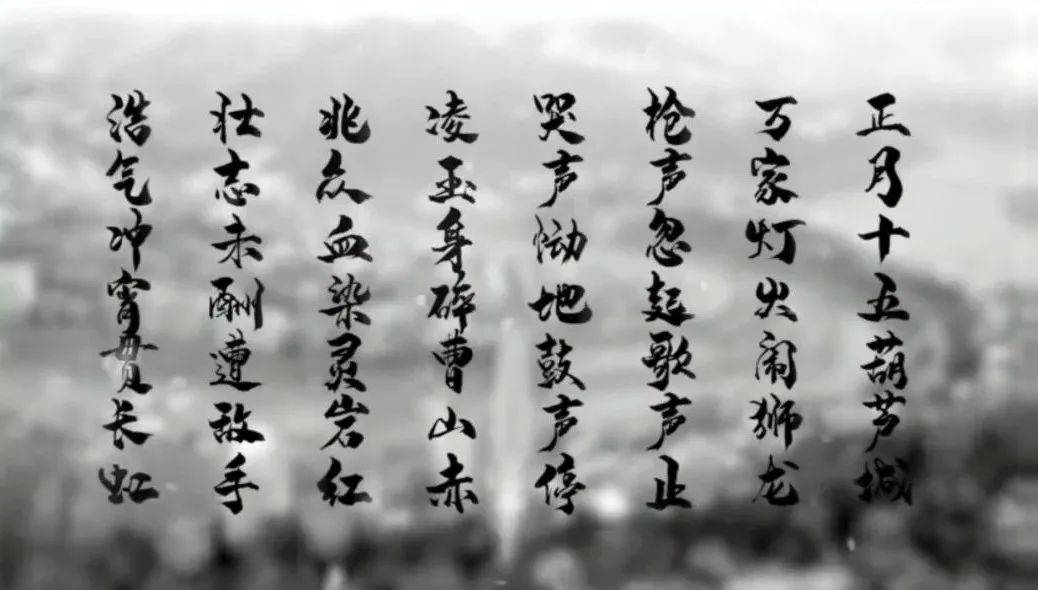 正月十五葫芦城
万家灯火闹狮龙
枪声忽起歌声止
哭声恸地鼓声停
凌玉身碎曹山赤
兆众血染灵岩红
壮志未酬遭敌手
浩气冲宵贯长虹